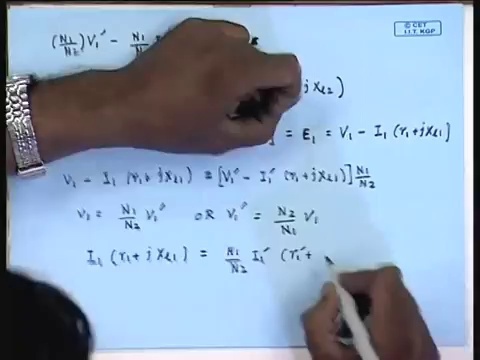 © CET
I.I.T. KGP
(N1/N2) V1' - N1/N
j Xl2)
= E1 = V1 - I1 (r1+jXl1)
V1 - I1 (r1+jXl1) = [V1' - I1' (r1+jXl1)] N1/N2
V1 = N1/N2 V1' OR V1' = N2/N1 V1
I1 (r1+j Xl1) = N1/N2 I1' (r1'+